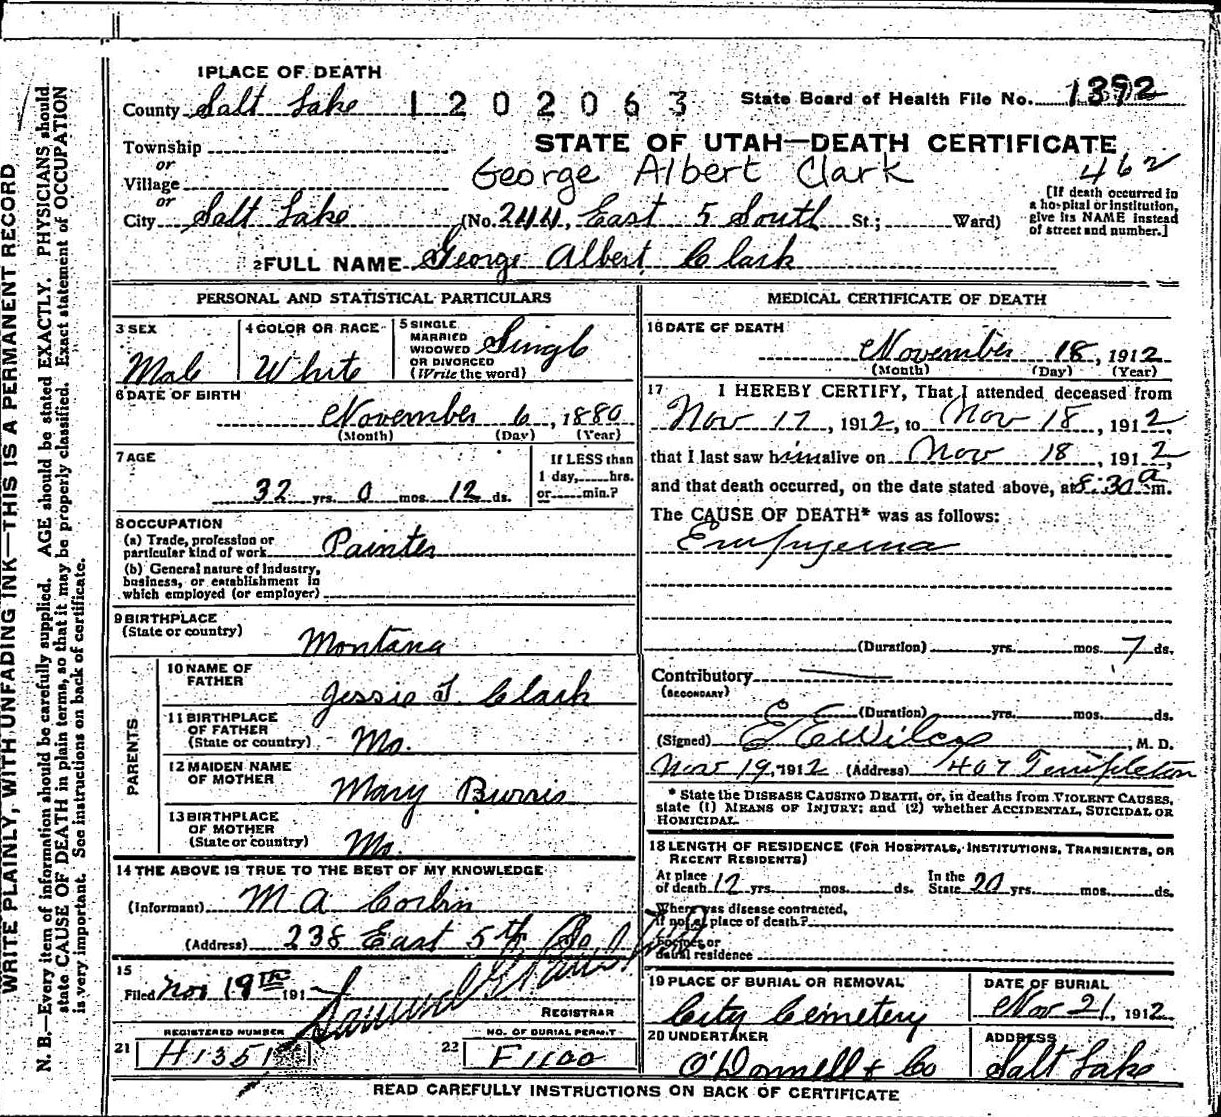 1 PLACE OF DEATH
County Salt Lake 1202063 State Board of Health File No. 1392
Township
or
Village
or
STATE OF UTAH—DEATH CERTIFICATE
George Albert Clark 462
City Salt Lake (No. 244, East 5 South St.; Ward)
[If death occurred in a hospital or institution, give its NAME instead of street and number.]
2 FULL NAME George Albert Clark
PERSONAL AND STATISTICAL PARTICULARS
3 SEX
Male
4 COLOR OR RACE
White
5 SINGLE
MARRIED
WIDOWED
OR DIVORCED
(Write the word)
Single
6 DATE OF BIRTH
November 6, 1880
(Month) (Day) (Year)
7 AGE
32 yrs. 0 mos. 12 ds.
If LESS than
1 day, hrs.
or min.?
8 OCCUPATION
(a) Trade, profession or
particular kind of work Painter
(b) General nature of industry,
business, or establishment in
which employed (or employer)
9 BIRTHPLACE
(State or country) Montana
PARENTS
10 NAME OF
FATHER Jessie T. Clark
11 BIRTHPLACE
OF FATHER
(State or country) Mo.
12 MAIDEN NAME
OF MOTHER Mary Burris
13 BIRTHPLACE
OF MOTHER
(State or country) Mo.
14 THE ABOVE IS TRUE TO THE BEST OF MY KNOWLEDGE
(Informant) M A Corbin
(Address) 238 East 5th So
15
Filed Nov 19th 191
REGISTRAR
REGISTERED NUMBER
21 H1351
NO. OF BURIAL PERMIT
22 F1100
MEDICAL CERTIFICATE OF DEATH
16 DATE OF DEATH
November 18, 1912
(Month) (Day) (Year)
17 I HEREBY CERTIFY, That I attended deceased from
Nov 17, 1912, to Nov 18, 1912,
that I last saw him alive on Nov 18, 1912,
and that death occurred, on the date stated above, at 8:30 a m.
The CAUSE OF DEATH* was as follows:
Empyema
(Duration) yrs. mos. 7 ds.
Contributory
(SECONDARY)
(Duration) yrs. mos. ds.
(Signed) E E Wilcox, M. D.
Nov 19, 1912 (Address) 407 Templeton
* State the DISEASE CAUSING DEATH, or, in deaths from VIOLENT CAUSES,
state (1) MEANS OF INJURY; and (2) whether ACCIDENTAL, SUICIDAL OR
HOMICIDAL.
18 LENGTH OF RESIDENCE (FOR HOSPITALS, INSTITUTIONS, TRANSIENTS, OR
RECENT RESIDENTS)
At place
of death 12 yrs. mos. ds.
In the
State 20 yrs. mos. ds.
Where was disease contracted,
if not at place of death?
Former or
usual residence
19 PLACE OF BURIAL OR REMOVAL
City Cemetery
DATE OF BURIAL
Nov 21, 1912
20 UNDERTAKER
O'Donnell & Co
ADDRESS
Salt Lake
READ CAREFULLY INSTRUCTIONS ON BACK OF CERTIFICATE
WRITE PLAINLY, WITH UNFADING INK—THIS IS A PERMANENT RECORD
N. B.—Every item of information should be carefully supplied. AGE should be stated EXACTLY. PHYSICIANS should
state CAUSE OF DEATH in plain terms, so that it may be properly classified. Exact statement of OCCUPATION
is very important. See instructions on back of certificate.